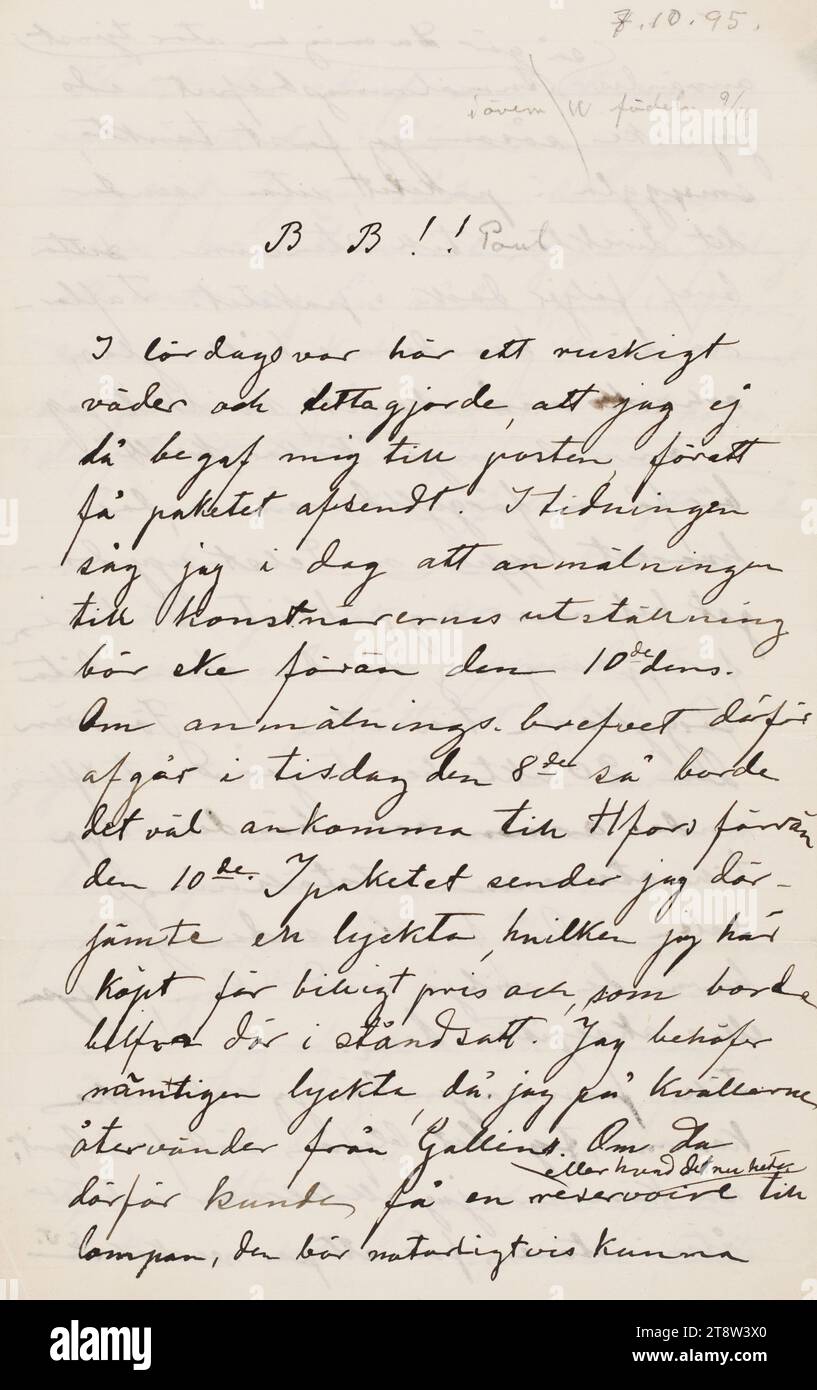 7.10.95.
i övem W födels 9/11
B B!! Paul
I lördags var här ett ruskigt
väder och detta gjorde, att jag ej
då begaf mig till posten, föratt
få paketet afsendt. I tidningen
såg jag i dag att anmälningen
till konstnärernas utställning
bör ske förän den 10de dens.
Om anmälnings-brefvet därför
afgår i tisdag den 8de så borde
det väl ankomma till Hfors förrän
den 10de. I paketet sender jag där-
jämte en lyckta, hvilken jag här
köpt för billigt pris och, som borde
blifva där i ståndsatt. Jag behöfer
nämligen lyckta, då jag på kvällarne
återvänder från Galléns. Om du
eller hvad det nu heter
därför kunde få en reservoire till
lampan, den bör naturligtvis kunna
alamy
Image ID: 2T8W3X0
www.alamy.com